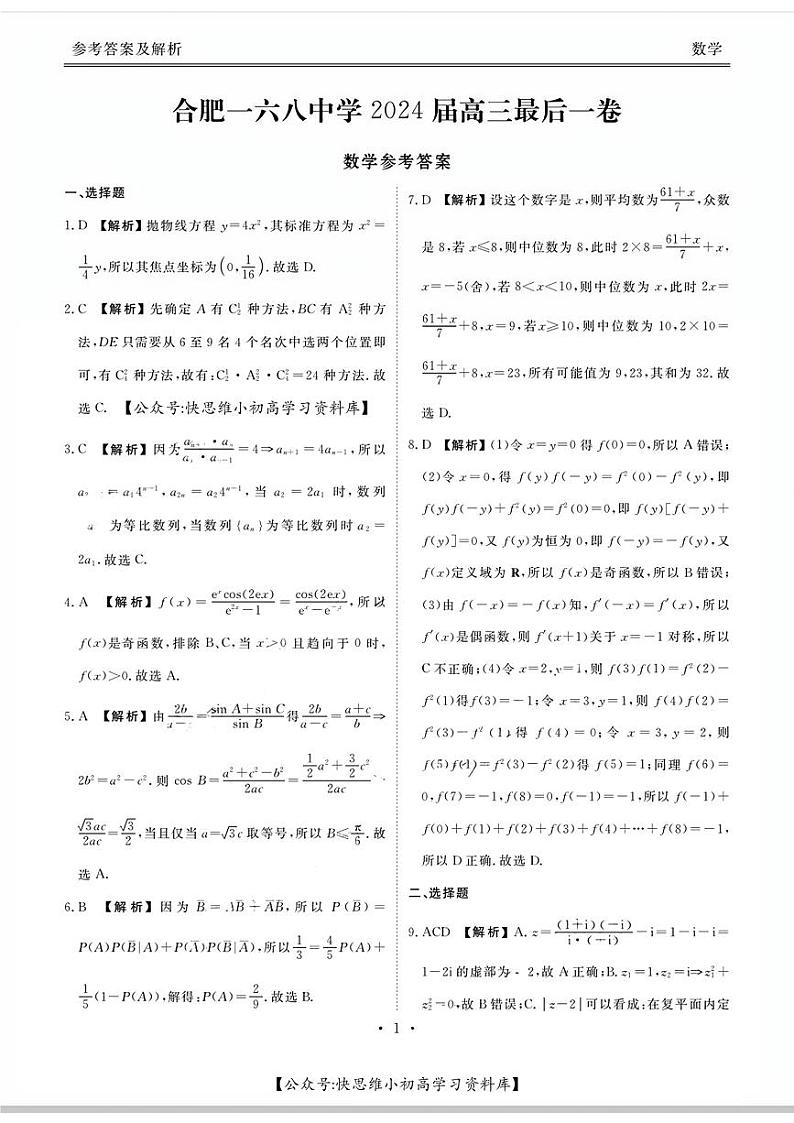 参考答案及解析 数学
合肥一六八中学 2024 届高三最后一卷
数学参考答案
一、选择题
1. D 【解析】抛物线方程 y=4x²,其标准方程为 x²=
1/4 y,所以其焦点坐标为(0,1/16).故选 D.
2. C 【解析】先确定 A 有 C₂¹ 种方法,BC 有 A₂² 种方
法,DE 只需要从 6 至 9 名 4 个名次中选两个位置即
可,有 C₄² 种方法,故有:C₂¹·A₂²·C₄²=24 种方法.故
选 C. 【公众号:快思维小初高学习资料库】
3. C 【解析】因为 =4⇒aₙ₊₁=4aₙ₋₁,所以
= a₁4ⁿ⁻¹,a₂ₙ=a₂4ⁿ⁻¹,当 a₂=2a₁ 时,数列
为等比数列,当数列{aₙ}为等比数列时 a₂=
2a₁.故选 C.
4. A 【解析】f(x)=eˣcos(2ex)/(e²ˣ−1)=cos(2ex)/(eˣ−e⁻ˣ),所以
f(x)是奇函数,排除 B、C,当 x>0 且趋向于 0 时,
f(x)>0.故选 A.
5. A 【解析】由 2b/(a−c)=(sin A+sin C)/sin B 得 2b/(a−c)=(a+c)/b⇒
2b²=a²−c².则 cos B=(a²+c²−b²)/2ac=(1/2 a²+3/2 c²)/2ac
√3ac/2ac=√3/2,当且仅当 a=√3c 取等号,所以 B≤π/6.故
选 A.
6. B 【解析】因为 B̅=AB̅+A̅B̅,所以 P(B̅)=
P(A)P(B̅|A)+P(A̅)P(B̅|A̅),所以 1/3=4/5 P(A)+
1/5(1−P(A)),解得:P(A)=2/9.故选 B.
7. D 【解析】设这个数字是 x,则平均数为(61+x)/7,众数
是 8,若 x≤8,则中位数为 8,此时 2×8=(61+x)/7+x,
x=−5(舍),若 8<x<10,则中位数为 x,此时 2x=
(61+x)/7+8,x=9,若x≥10,则中位数为 10,2×10=
(61+x)/7+8,x=23,所有可能值为 9,23,其和为 32.故
选 D.
8. D 【解析】(1)令 x=y=0 得 f(0)=0,所以 A 错误;
(2)令 x=0,得 f(y)f(−y)=f²(0)−f²(y),即
f(y)f(−y)+f²(y)=f²(0)=0,即 f(y)[f(−y)+
f(y)]=0,又 f(y)为恒为 0,即 f(−y)=−f(y),又
f(x)定义域为 R,所以 f(x)是奇函数,所以 B 错误;
(3)由 f(−x)=−f(x)知,f′(−x)=f′(x),所以
f′(x)是偶函数,则 f′(x+1)关于 x=−1 对称,所以
C 不正确;(4)令 x=2,y=1,则 f(3)f(1)=f²(2)−
f²(1)得f(3)=−1;令 x=3,y=1,则 f(4)f(2)=
f²(3)−f²(1)得 f(4)=0;令 x=3,y=2,则
f(5)f(1)=f²(3)−f²(2)得 f(5)=1;同理 f(6)=
0,f(7)=−1,f(8)=0,f(−1)=−1,所以 f(−1)+
f(0)+f(1)+f(2)+f(3)+f(4)+⋯+f(8)=−1,
所以 D 正确.故选 D.
二、选择题
9. ACD 【解析】A. z=(1+i)(−i)/i·(−i)−i=1−i−i=
1−2i 的虚部为−2,故 A 正确;B. z₁=1,z₂=i⇒z₁²+
z₂²=0,故 B 错误;C. |z−2|可以看成:在复平面内定
· 1 ·
【公众号:快思维小初高学习资料库】